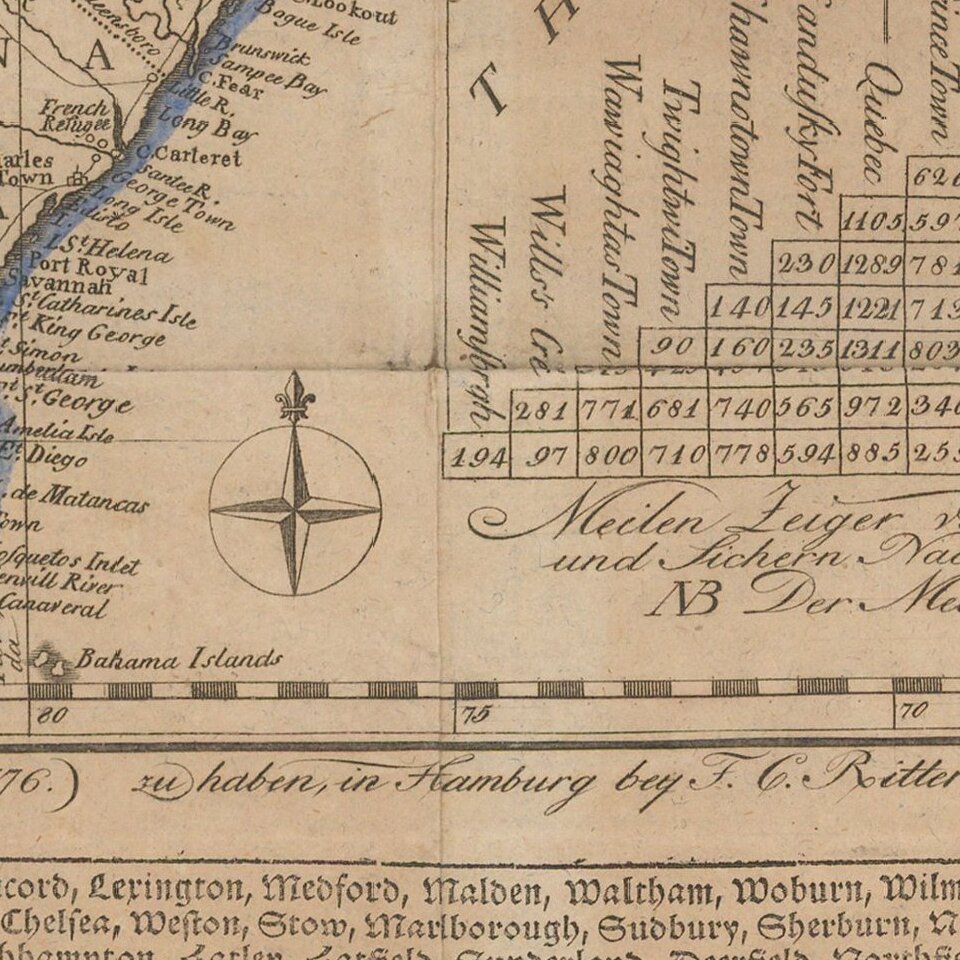 C. Lookout
Bogue Isle
Queensboro
N A
Brunswick
Sampee Bay
C. Fear
Little R.
Long Bay
French
Refugee
C. Carteret
arles
Town
Santee R.
George Town
Long Isle
Edisto
I. St. Helena
Port Royal
Savannah
St. Catharines Isle
King George
Simon
St. George
Amelia Isle
Diego
de Matancas
own
osquetos Inlet
envill River
Canaveral
da
Bahama Islands
T H
Williamsbrgh
Wills's Cre
Wawiaghtas Town
Twightwi Town
Shawnotown Town
Sandusky Fort
Quiebec
ince Town
626
1105 597
230 1289 781
140 145 1221 713
90 160 235 1311 803
281 771 681 740 565 972 346
194 97 800 710 778 594 885 255
Meilen Zeiger
und Sichern Nac
NB Der Mei
80 75 70
76.) zu haben, in Hamburg bey F. C. Ritter
cord, Lexington, Medford, Malden, Waltham, Woburn, Wilm
Chelsea, Weston, Stow, Marlborough, Sudbury, Sherburn, N